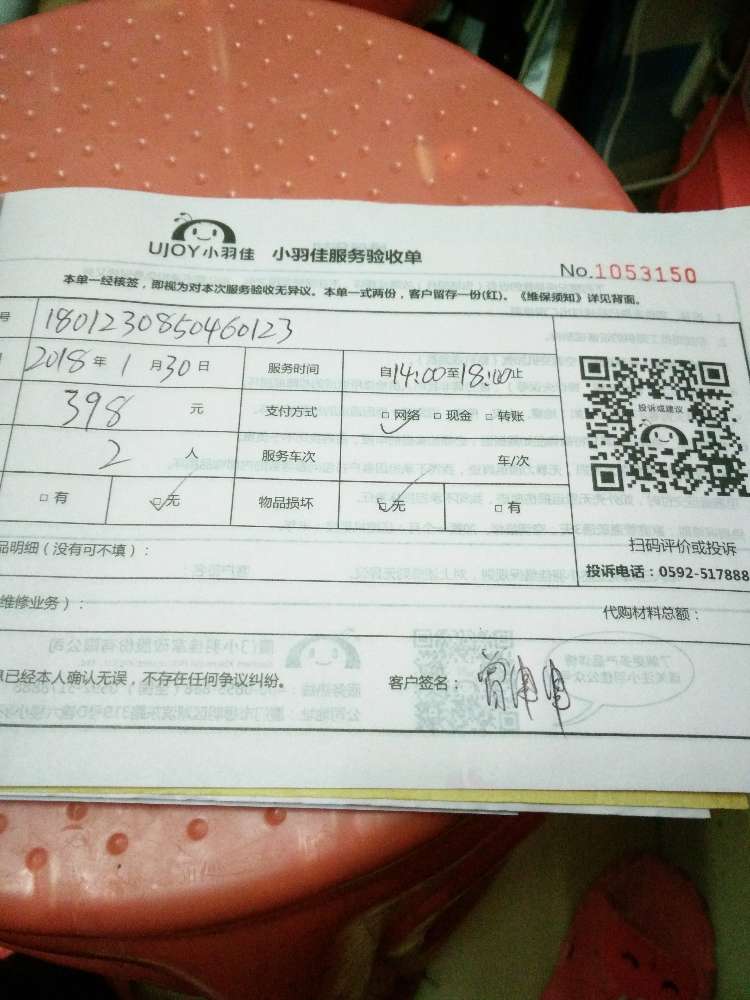 UJOY小羽佳 小羽佳服务验收单
No.1053150
本单一经核签，即视为对本次服务验收无异议。本单一式两份，客户留存一份(红)。《维保须知》详见背面。
号 1801230850460123
2018年1月30日 服务时间 自14:00至18:00止
398 元 支付方式 □网络 □现金 □转账
2 人 服务车次 车/次
□有 □无 物品损坏 □无 □有
投诉或建议
扫码评价或投诉
品明细（没有可不填）：
投诉电话：0592-517888
维修业务）： 代购材料总额：
已经本人确认无误，不存在任何争议纠纷。 客户签名：